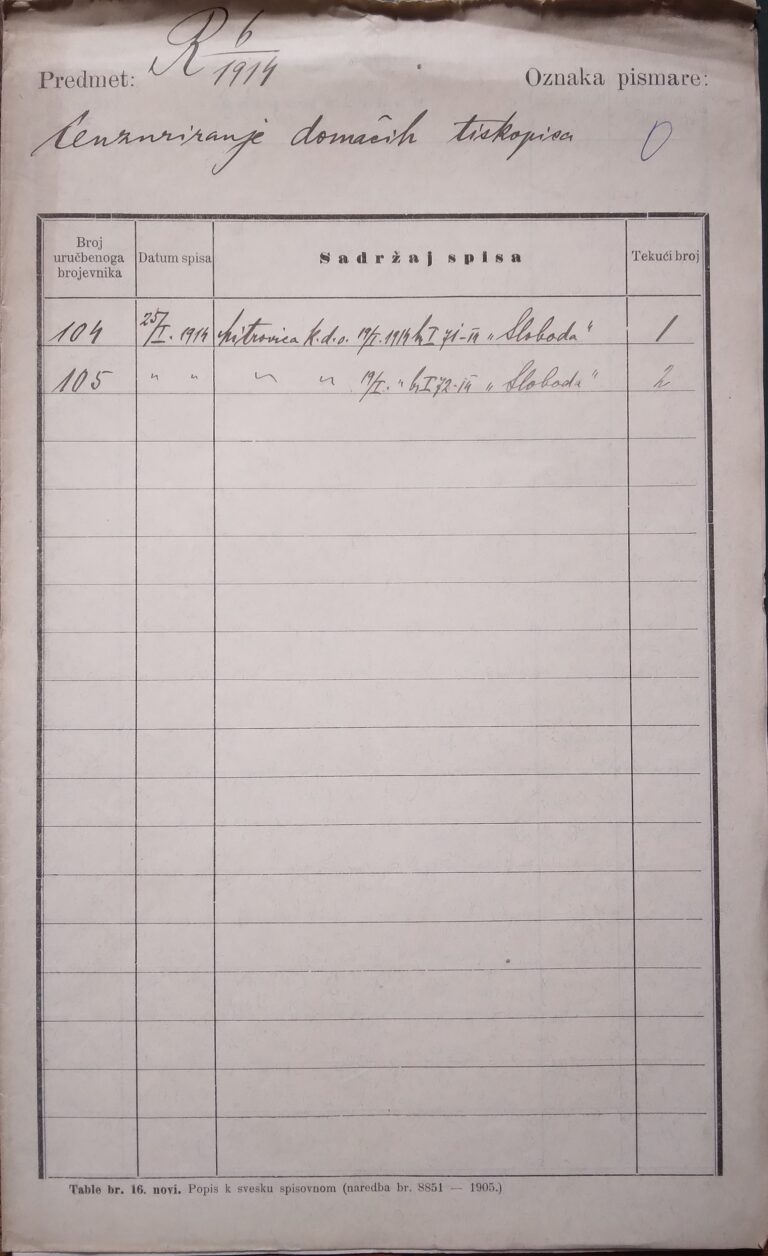 Predmet: R 6/1914 Oznaka pismare:
Cenzuriranje domaćih tiskopisa 0
Broj uručbenoga brojevnika Datum spisa Sadržaj spisa Tekući broj
104 25/I. 1914 Mitrovica k.d.o. 19/I. 1914 br I 71-IV „Sloboda" 1
105 " " " " 19/I. " br I 72-IV „Sloboda" 2
Table br. 16. novi. Popis k svesku spisovnom (naredba br. 8851 — 1905.)